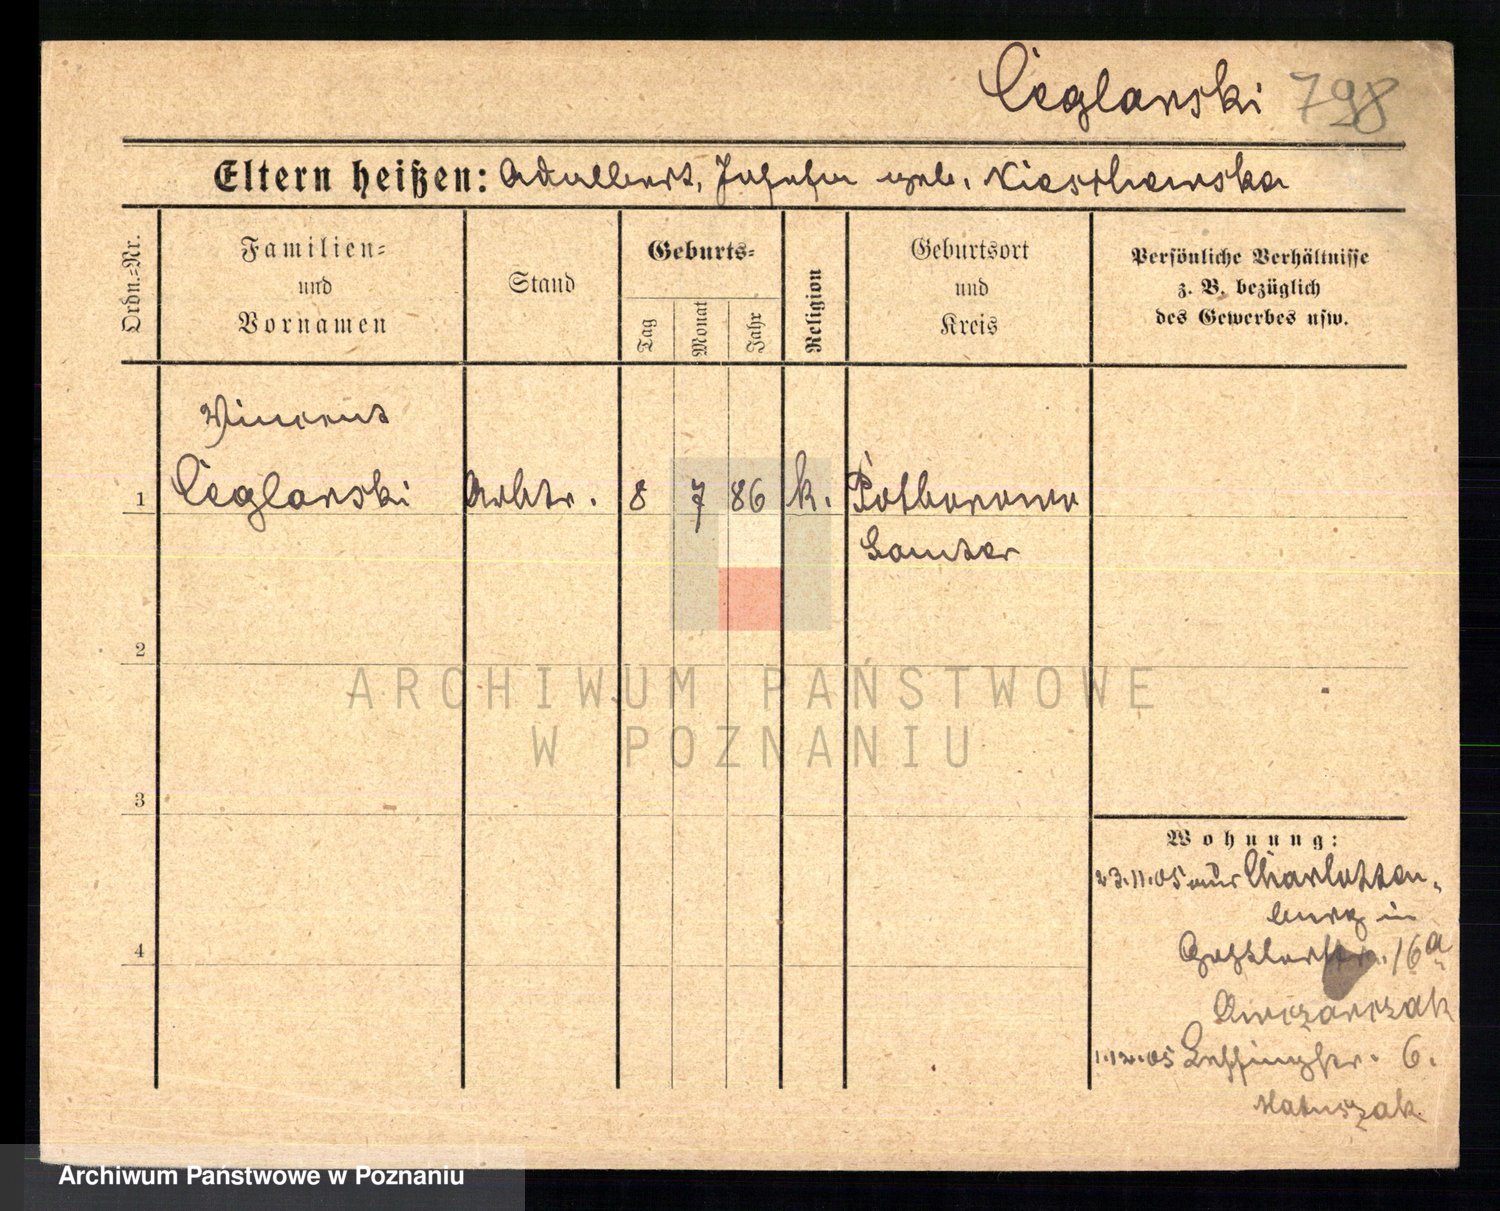 Ceglarski 798
Eltern heißen: Adalbert, Josefa geb.
Ordn.=Nr.
Familien=
und
Vornamen
Stand
Geburts=
Tag
Monat
Jahr
Religion
Geburtsort
und
Kreis
Persönliche Verhältnisse
z. B. bezüglich
des Gewerbes usw.
Vincent
1 Ceglarski Arbtr. 8 7 86 k.
Samter
2
ARCHIWUM PAŃSTWOWE
W POZNANIU
3
4
Wohnung:
23.11.05 aus Charlotten-
burg in
16a
Owczarczak
1.12.05 Lessingstr. 6.
Matuszak
Archiwum Państwowe w Poznaniu